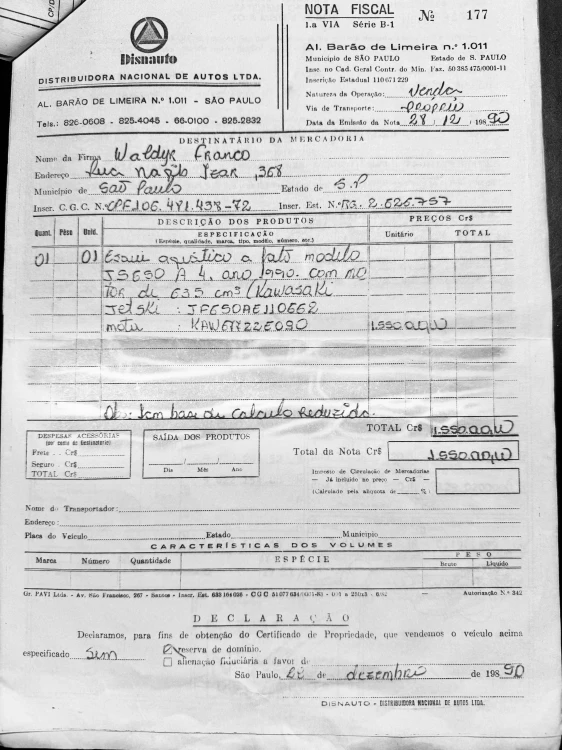 Disnauto
DISTRIBUIDORA NACIONAL DE AUTOS LTDA.
AL. BARÃO DE LIMEIRA N.º 1.011 - SÃO PAULO
Tels.: 826-0608 - 825-4045 - 66-0100 - 825-2832
NOTA FISCAL Nº 177
1.a VIA Série B-1
Al. Barão de Limeira n.º 1.011
Município de SÃO PAULO Estado de S. PAULO
Insc. no Cad. Geral Contr. do Min. Faz. 50 385 475/0001-11
Inscrição Estadual 110 671 229
Natureza da Operação: Venda
Via de Transporte: próprio
Data da Emissão da Nota 28 / 12 / 1990
DESTINATÁRIO DA MERCADORIA
Nome da Firma Waldyr Franco
Endereço Rua Nagib Izar, 368
Município de São Paulo Estado de S.P
Inscr. C.G.C. N.º CPF 106.481.498-72 Inscr. Est. N.º RG. 2.626.757
Quant. Pêso Unid. DESCRIÇÃO DOS PRODUTOS PREÇOS Cr$
ESPECIFICAÇÃO Unitário TOTAL
(Espécie, qualidade, marca, tipo, modêlo, número, etc.)
01 01 Esqui aquático a jato modelo
JS650 A 4, ano 1990. com mo
tor de 635 cm³ (Kawasaki
Jetski : JF650AE110662
motor : KAW67722E090 1.550.00,00
Ob: Com base de calculo reduzido.
TOTAL Cr$ 1.550.00,00
DESPESAS ACESSÓRIAS
(por conta do Destinatário)
Frete Cr$
Seguro Cr$
TOTAL Cr$
SAÍDA DOS PRODUTOS
Dia Mês Ano
Total da Nota Cr$ 1.550.00,00
Imposto de Circulação de Mercadorias
— Já incluído no preço — Cr$ —
(Calculado pela alíquota de %)
Nome do Transportador:
Endereço:
Placa do Veículo Estado Município
CARACTERÍSTICAS DOS VOLUMES
Marca Número Quantidade ESPÉCIE PESO
Bruto Líquido
Gr. PAVI Ltda. - Av. São Francisco, 267 - Santos - Inscr. Est. 633 104 098 Autorização N.º 342
DECLARAÇÃO
Declaramos, para fins de obtenção do Certificado de Propriedade, que vendemos o veículo acima
especificado sem reserva de domínio.
alienação fiduciária a favor de
São Paulo, 28 de dezembro de 1990
DISNAUTO - DISTRIBUIDORA NACIONAL DE AUTOS LTDA.